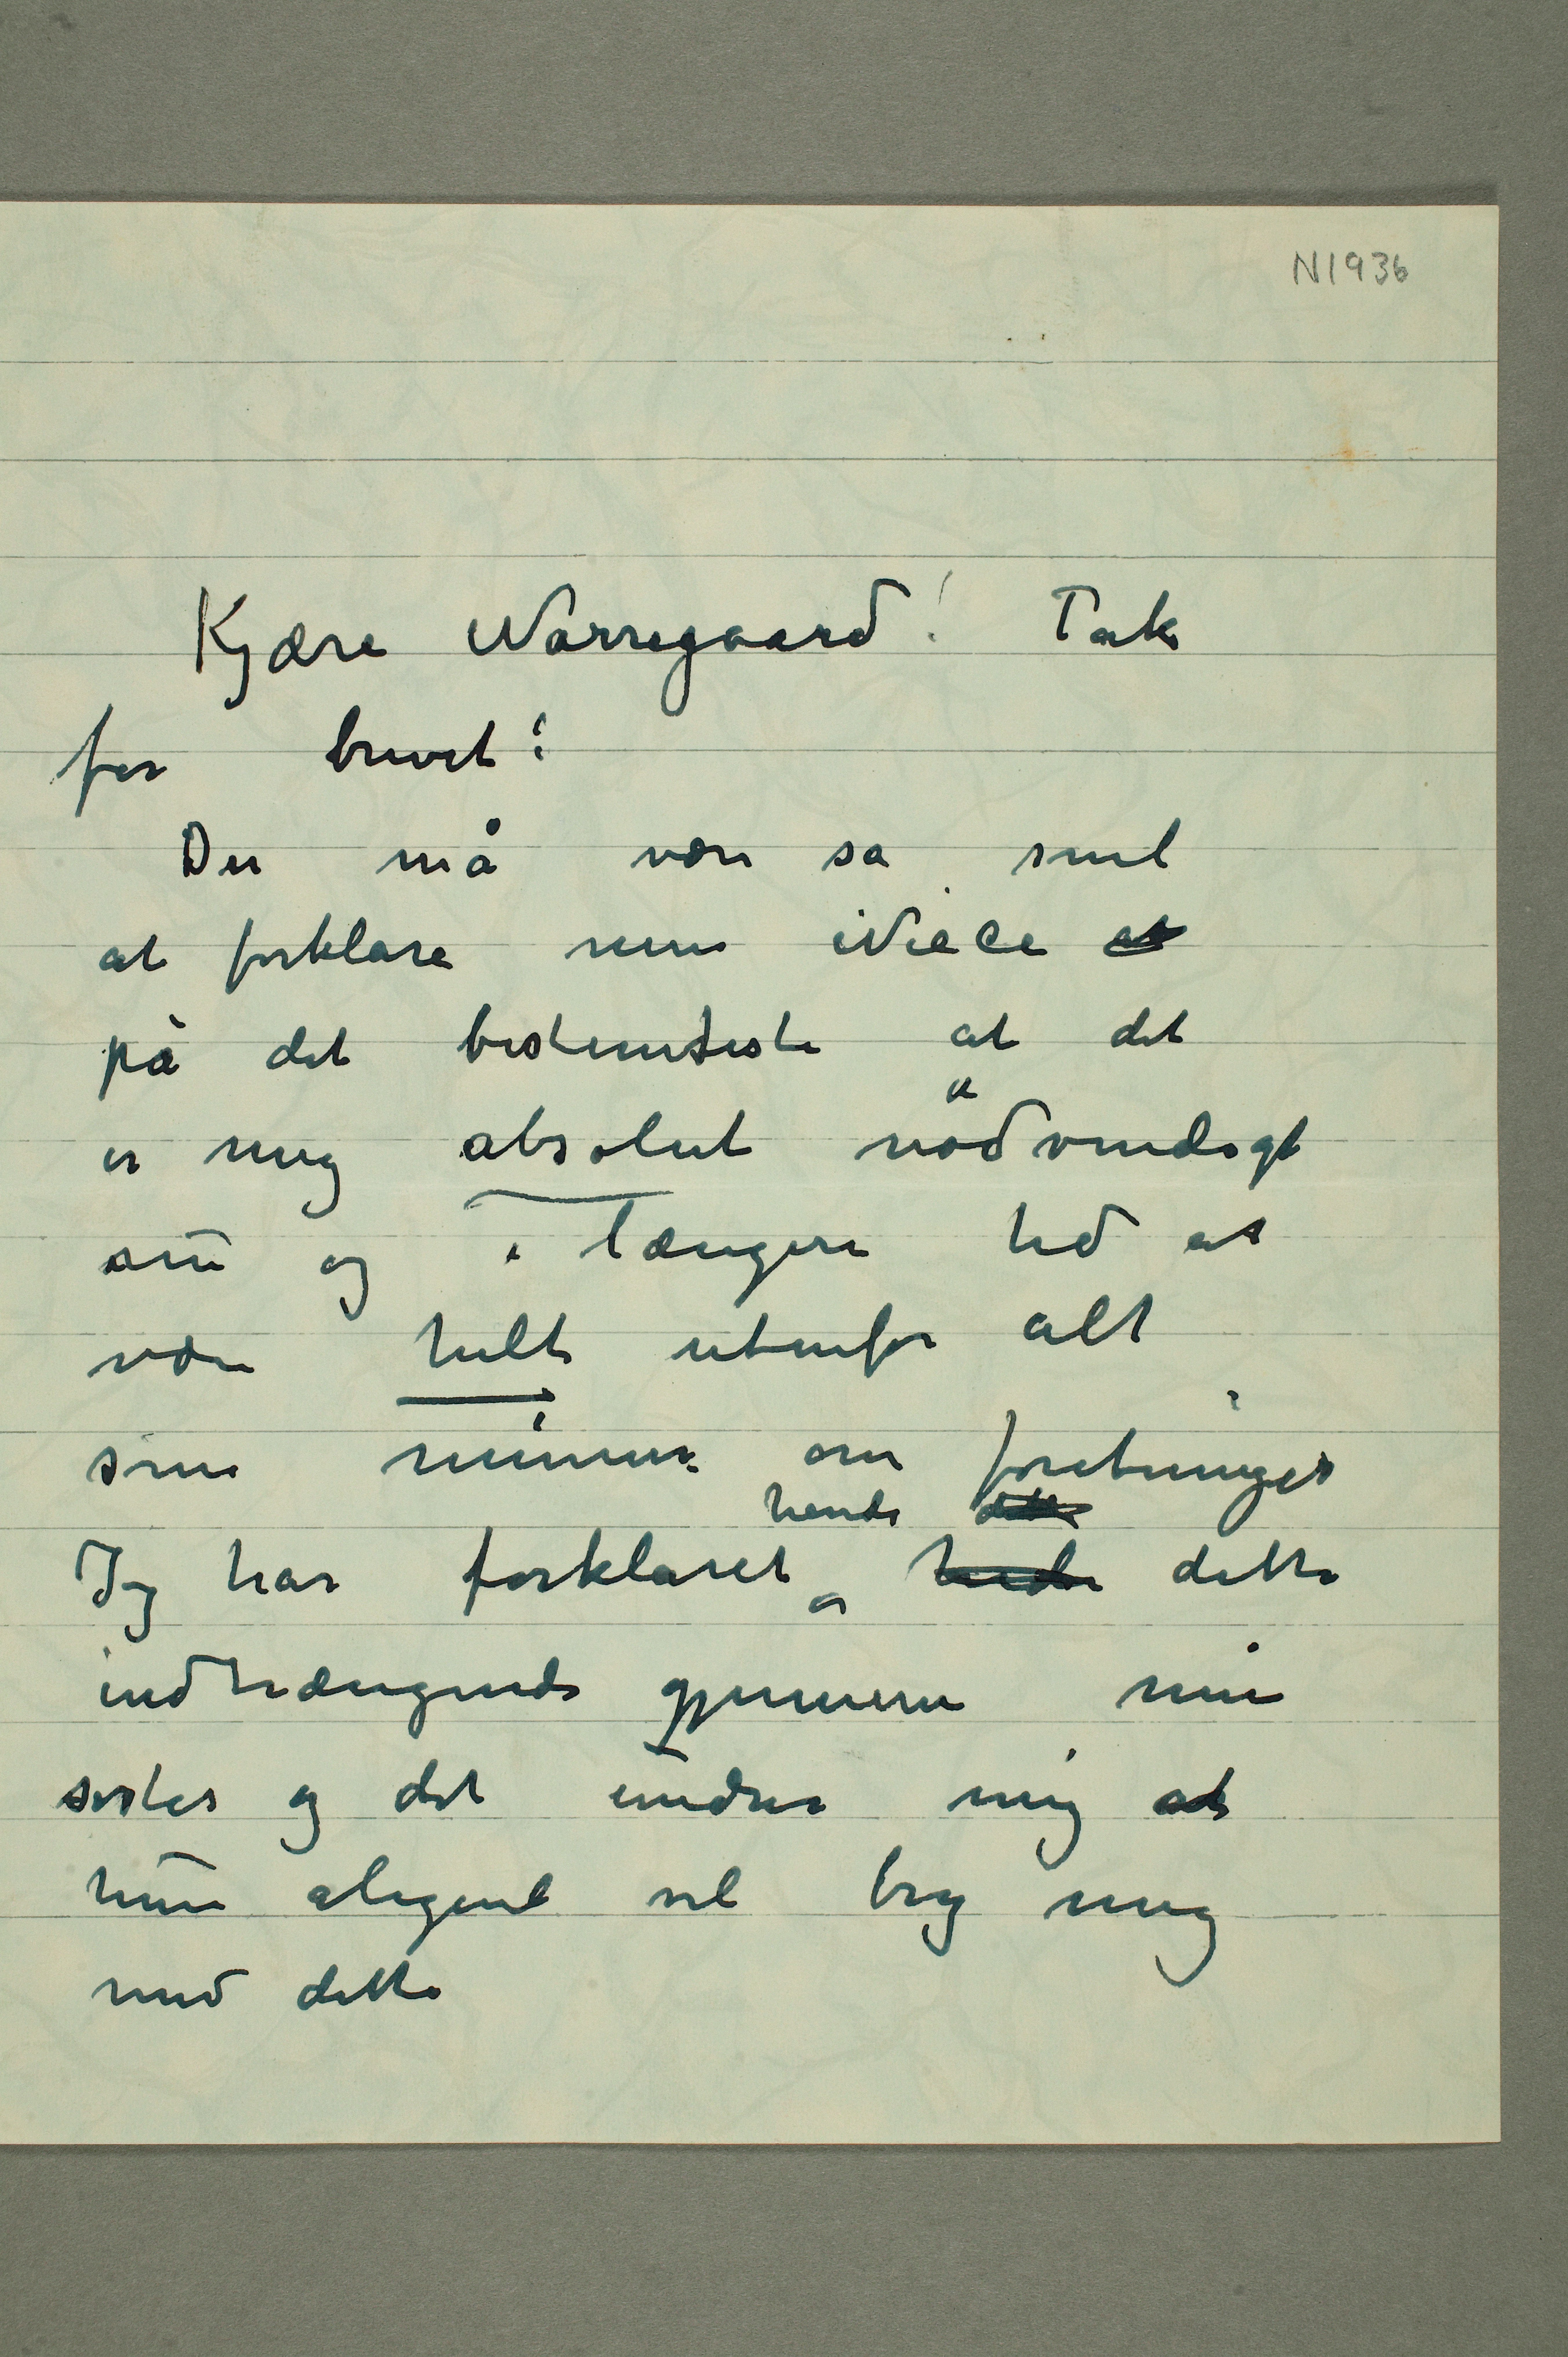 N1936
Kjære Nørregaard! Tak
for brevet!
Du må være sa snil
at forklare min Niece at
på det bestemteste at det
er mig absolut nödvendigt
nu og i længere tid at
være helt utenfor alt
som minner om foretninger
hende dette
Jeg har forklaret hende dette
indtrængende gjennem min
søster og det undrer mig at
hun aligevel vil bry mig
med dette